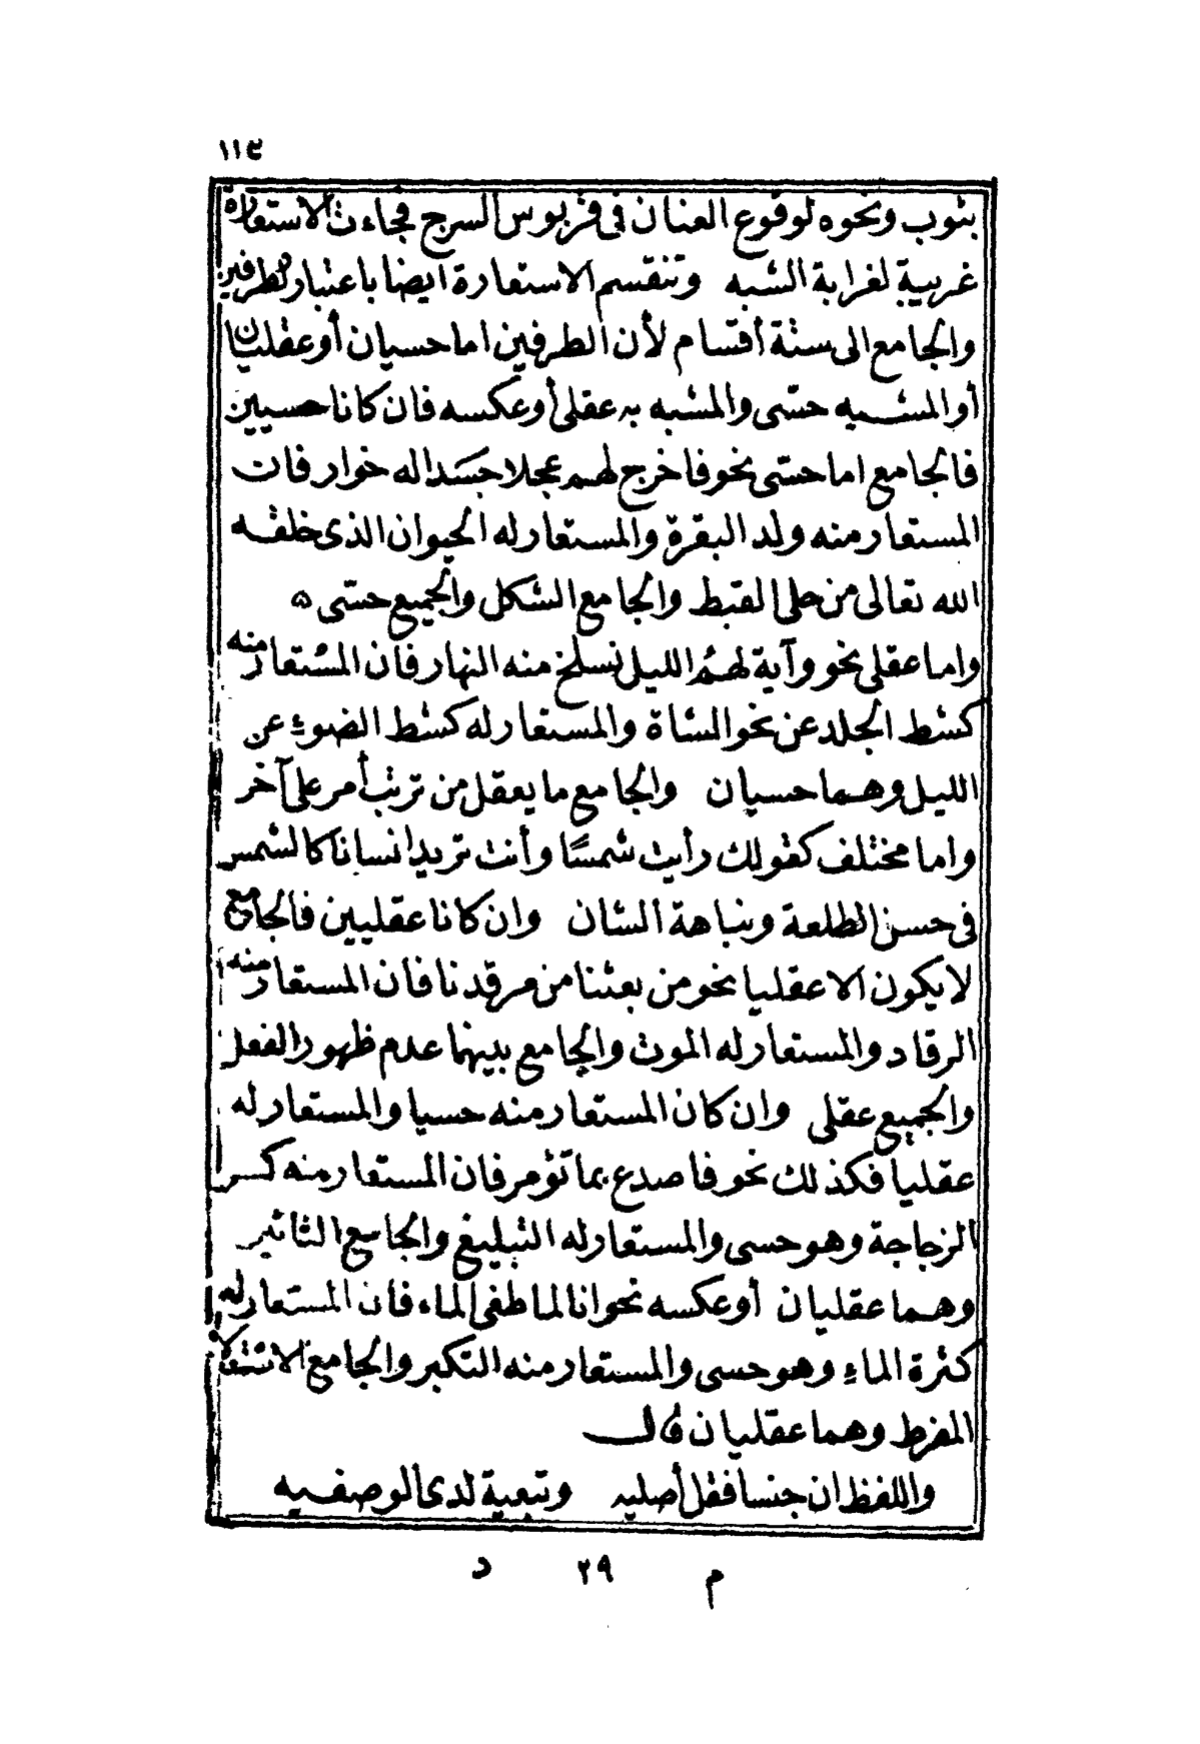 ١١٣
بثوب ونحوه لوقوع العنان فى قربوس السرج فجاءت الاستعارة
غريبة لغرابة الشبه وتنقسم الاستعارة أيضا باعتبار الطرفين
والجامع الى ستة أقسام لأن الطرفين اما حسيان أو عقليان
أو المشبه حسّى والمشبه به عقلى أو عكسه فان كانا حسيين
فالجامع اما حسّى نحو فاخرج لهم عجلا جسَدا له خوار فان
المستعار منه ولد البقرة والمستعار له الحيوان الذى خلقه
الله تعالى من حلى القبط والجامع الشكل والجميع حسّى ه
واما عقلى نحو وآية لهمُ الليل نسلخ منه النهار فان المسْتعار منه
كشط الجلد عن نحو الشاة والمستعار له كشط الضوءِ عن
الليل وهما حسيان والجامع ما يعقل من ترتب أمر على آخر
واما مختلف كقولك رأيت شمسًا وأنت تريد انسانا كالشمس
فى حسن الطلعة ونباهة الشان وان كانا عقليين فالجامع
لا يكون الا عقليا نحو من بعثنا من مرقدنا فان المستعار منه
الرقاد والمستعار له الموت والجامع بينهما عدم ظهور الفعل
والجميع عقلى وان كان المستعار منه حسيا والمستعار له
عقليا فكذلك نحو فاصدع بما تؤمر فان المستعار منه كسر
الزجاجة وهو حسى والمستعار له التبليغ والجامع التاثير
وهما عقليان أو عكسه نحو انا لما طغى الماء فان المستعار له
كثرة الماءِ وهو حسى والمستعار منه التكبر والجامع الاستعلا
المفرط وهما عقليان قال
واللفظ ان جنسا فقل أصليه وتبعية لدى الوصفيه
م ٢٩ د